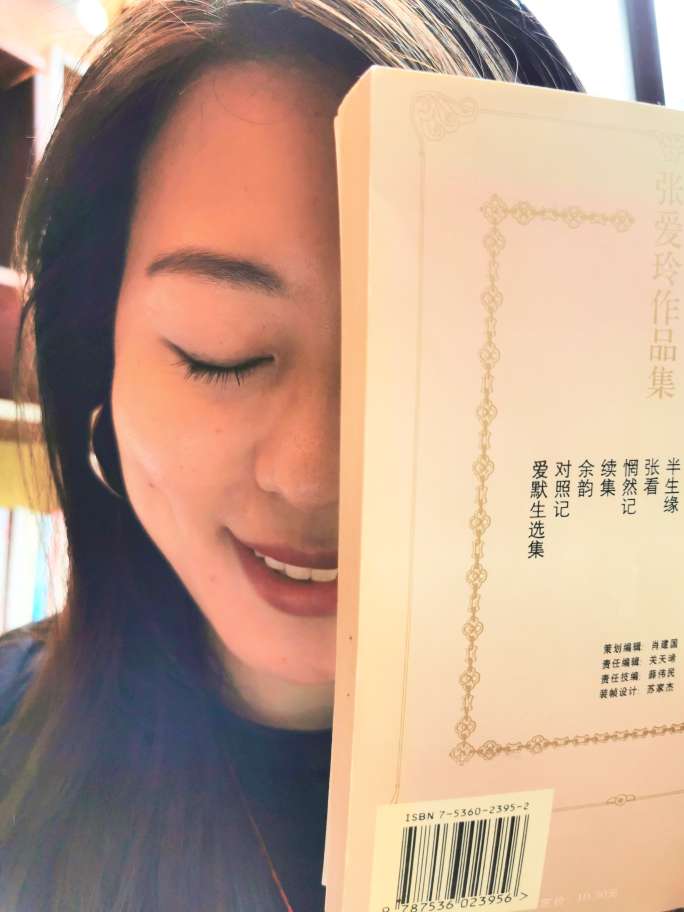 张爱玲作品集
半生缘
张看
惘然记
续集
余韵
对照记
爱默生选集
策划编辑: 肖建国
责任编辑: 关天晞
责任技编: 薛伟民
装帧设计: 苏家杰
ISBN 7-5360-2395-2
9 787536 023956 >
定价: 10.90元